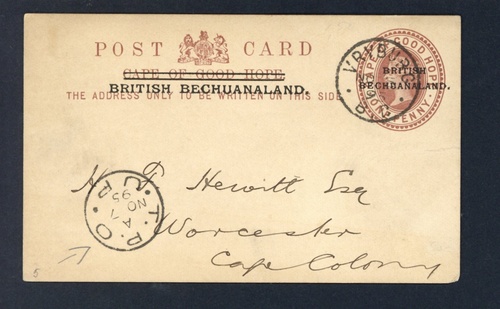 POST CARD
CAPE OF GOOD HOPE
BRITISH BECHUANALAND.
THE ADDRESS ONLY TO BE WRITTEN ON THIS SIDE
CAPE OF GOOD HOPE
BRITISH
BECHUANALAND.
ONE PENNY
VRYBURG
B.B
H F Hewitt Esq
Worcester
Cape Colony
T.P.O.
A
NO 7
95
5